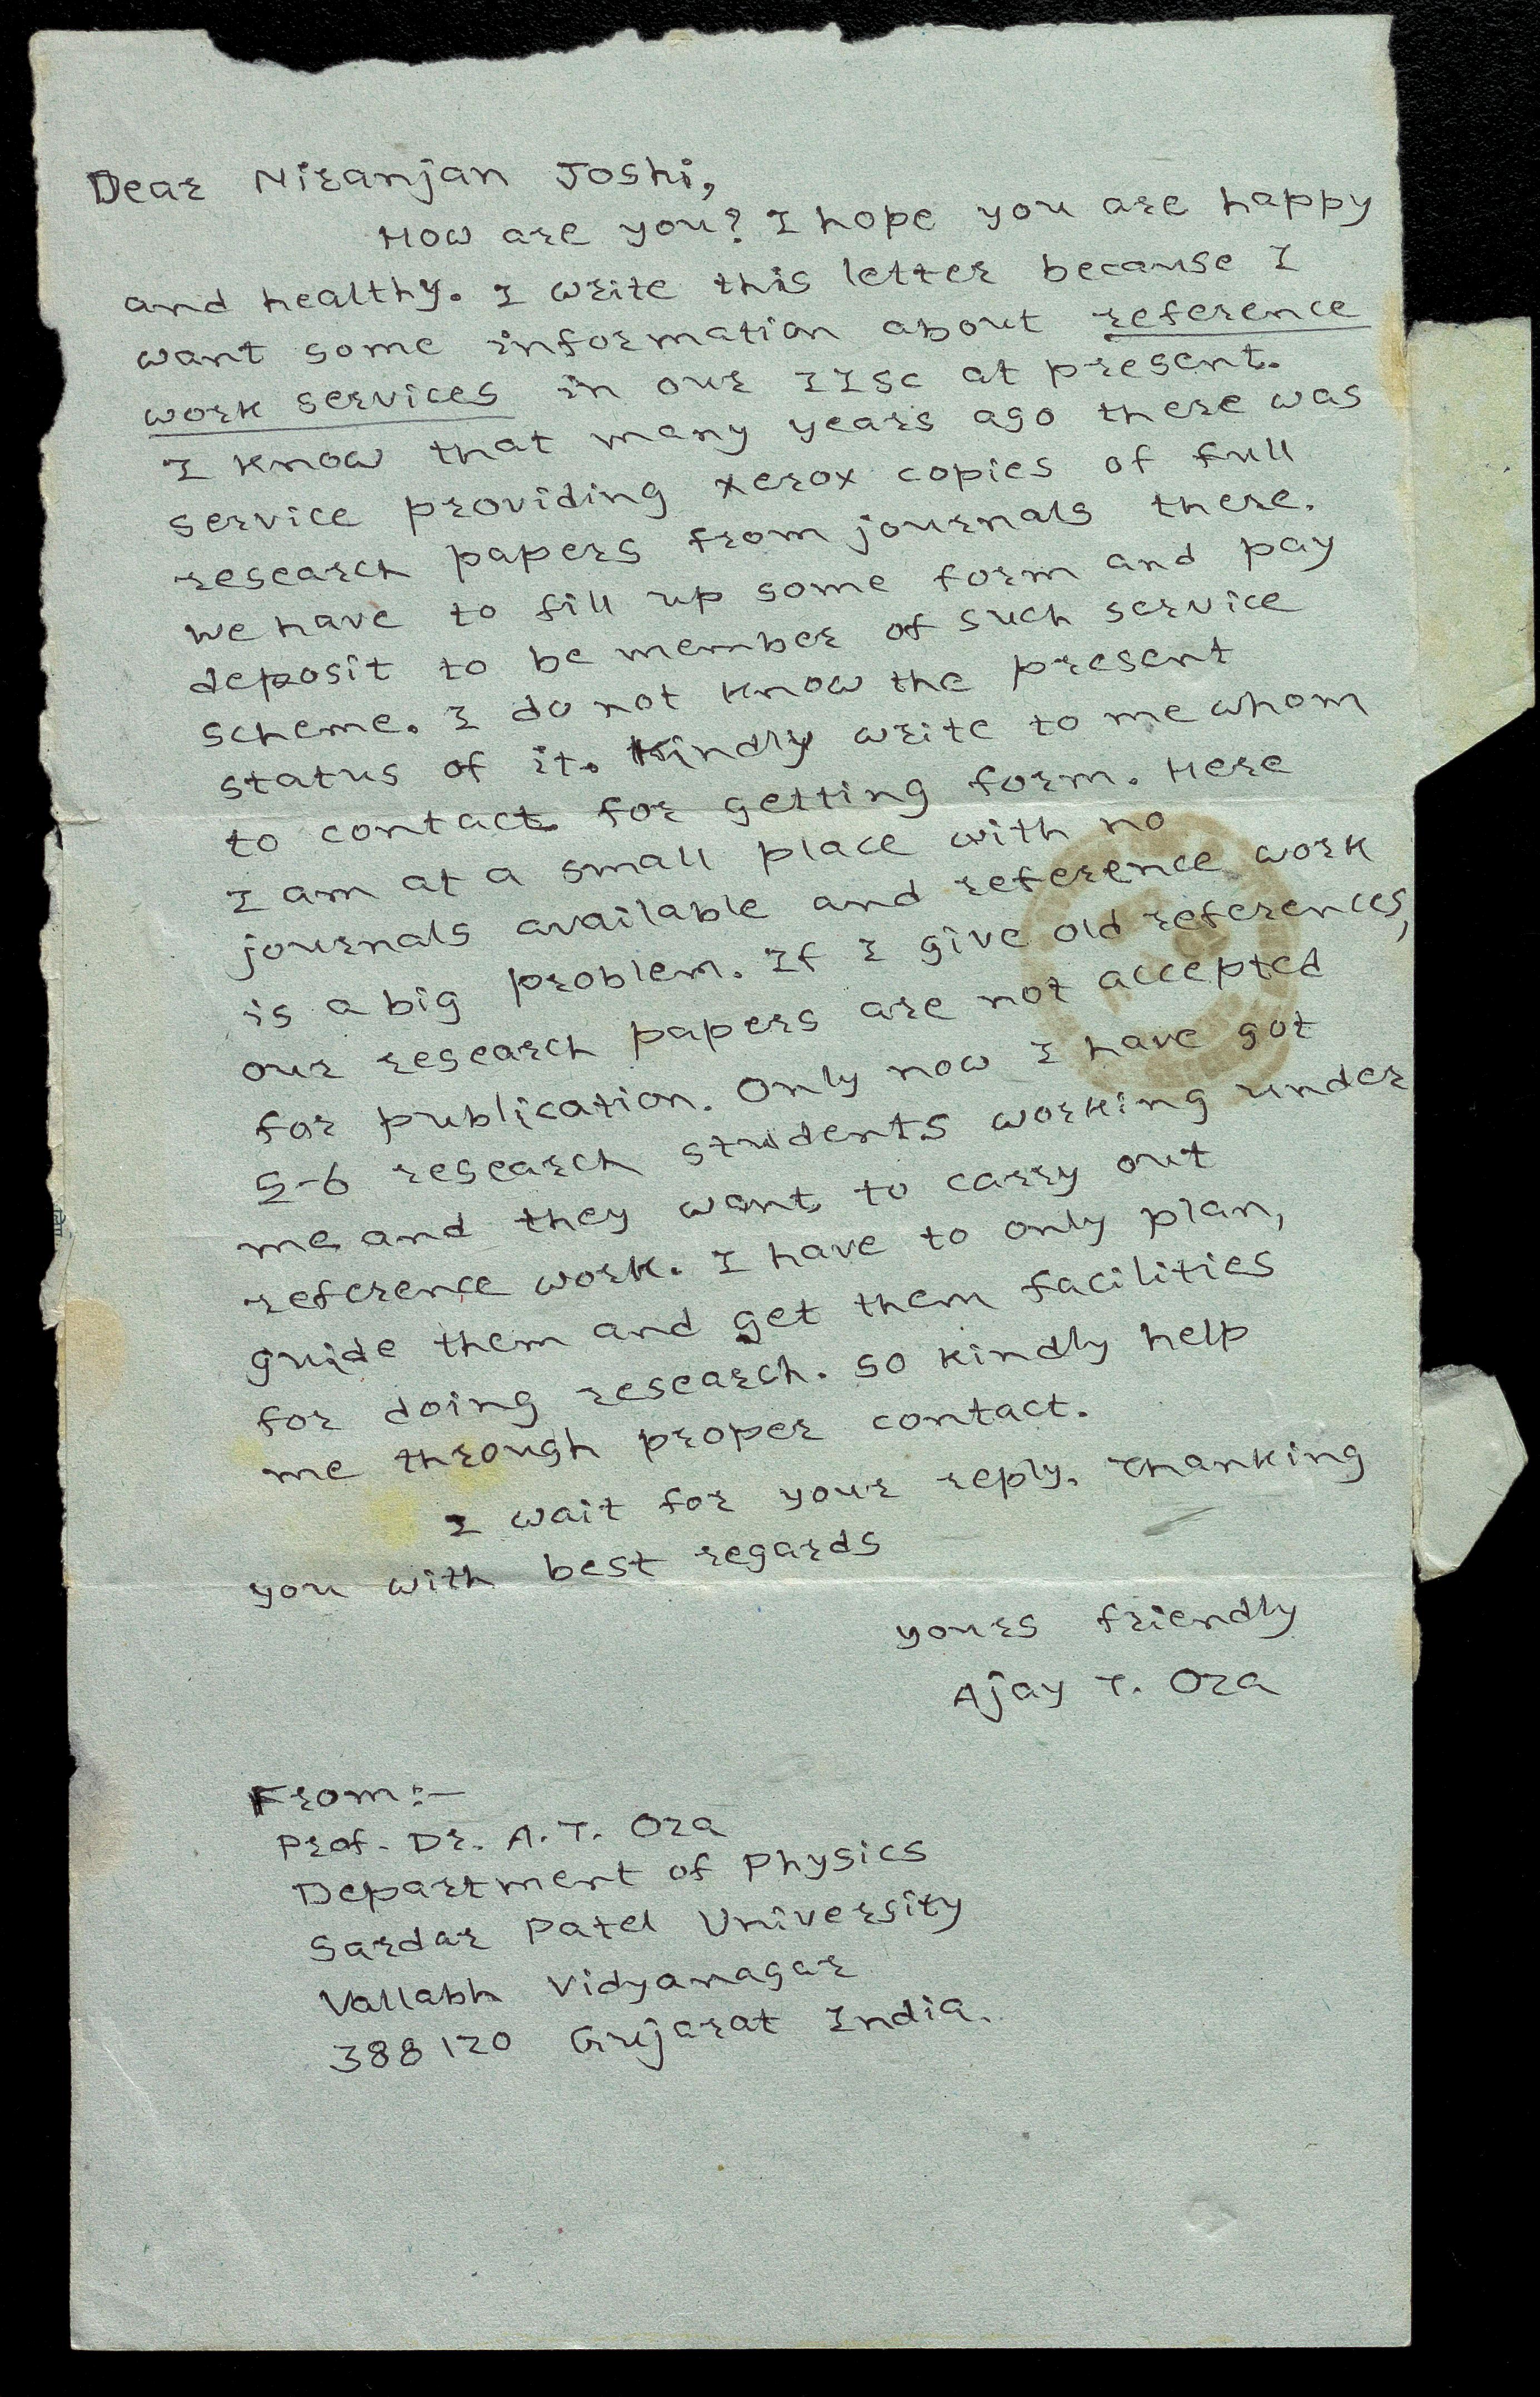 Dear Niranjan Joshi,
How are you? I hope you are happy
and healthy. I write this letter because I
want some information about reference
work services in our IISc at present.
I know that many years ago there was
service providing xerox copies of full
research papers from journals there.
We have to fill up some form and pay
deposit to be member of such service
scheme. I do not know the present
status of it. Kindly write to me whom
to contact for getting form. Here
I am at a small place with no
journals available and reference work
is a big problem. If I give old references,
our research papers are not accepted
for publication. Only now I have got
5-6 research students working under
me and they want to carry out
reference work. I have to only plan,
guide them and get them facilities
for doing research. So kindly help
me through proper contact.
I wait for your reply. Thanking
you with best regards
yours friendly
Ajay T. Oza
From:-
Prof. Dr. A. T. Oza
Department of Physics
Sardar Patel University
Vallabh Vidyanagar
388120 Gujarat India.